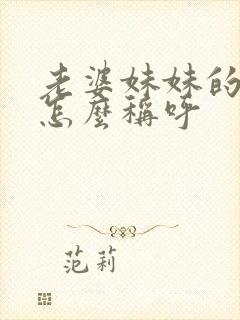 老婆妹妹的
怎麼稱呼
范莉